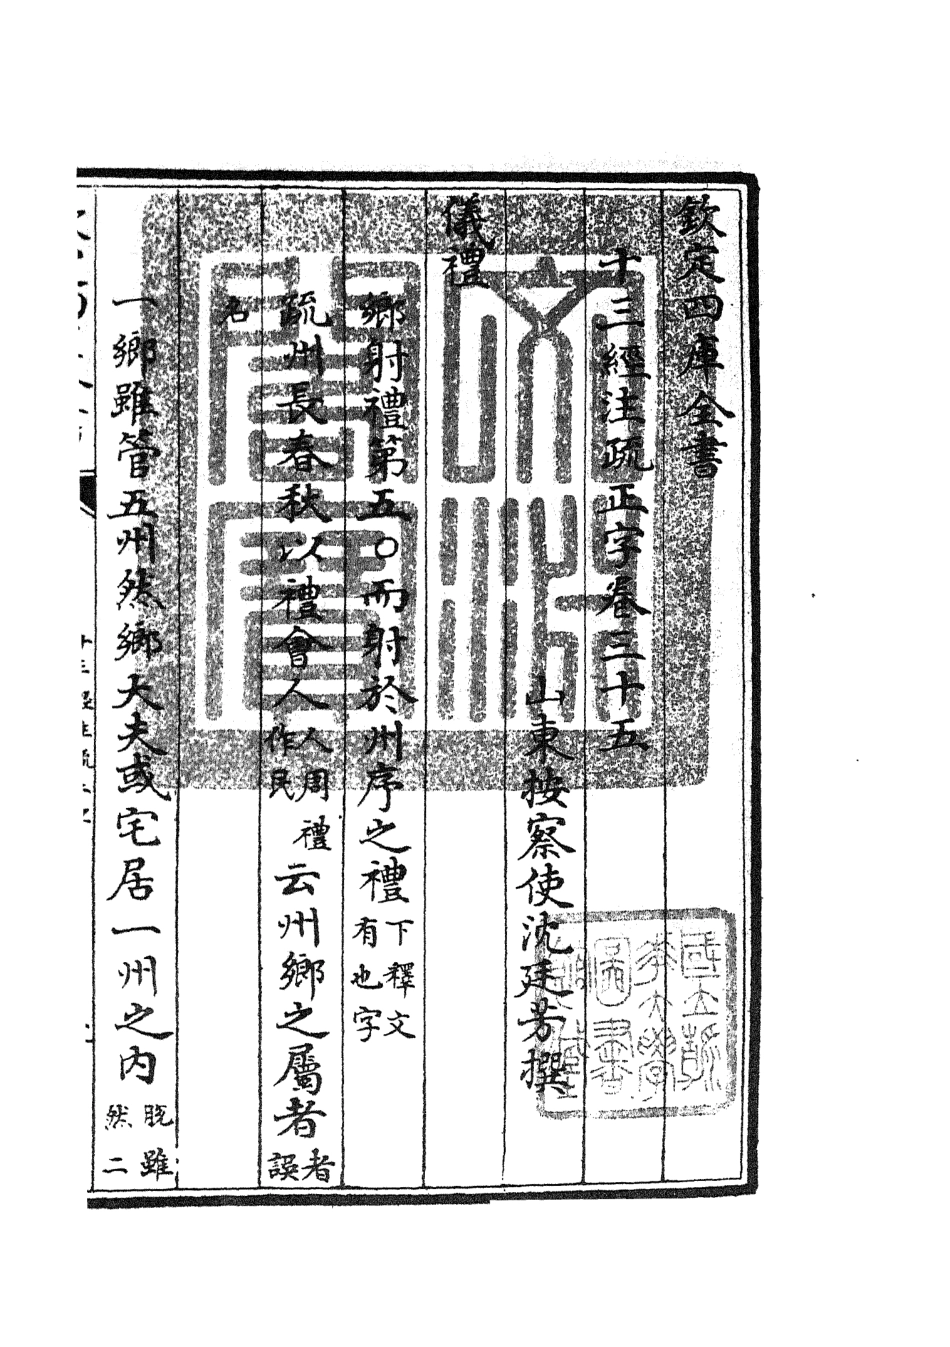 欽定四庫全書
十三經注疏正字卷三十五
山東按察使沈廷芳撰
儀禮
鄉射禮第五○而射於州序之禮下釋文有也字
疏州長春秋以禮會人人周禮作民云州鄉之屬者者誤
名
一鄉雖管五州然鄉大夫或宅居一州之内脱雖然二